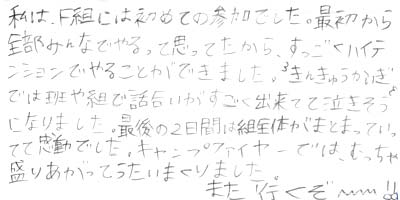 私は、F組には初めての参加でした。最初から
全部みんなでやるって思ってたから、すっごくハイテ
ンションでやることができました。きんきゅうかいぎ
では班や組で話合いがすごく出来てて泣きそう
になりました。最後の2日間は組全体がまとまってい
てて感動でした。キャンプファイヤーでは、むっちゃ
盛りあがってうたいまくりました。
また行くぞ〜〜!!